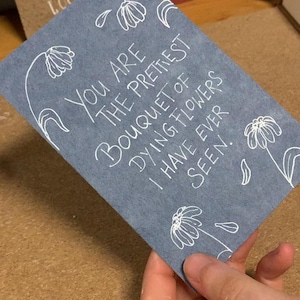 YOU ARE
THE PRETTIEST
BOUQUET OF
DYING FLOWERS
I HAVE EVER
SEEN.